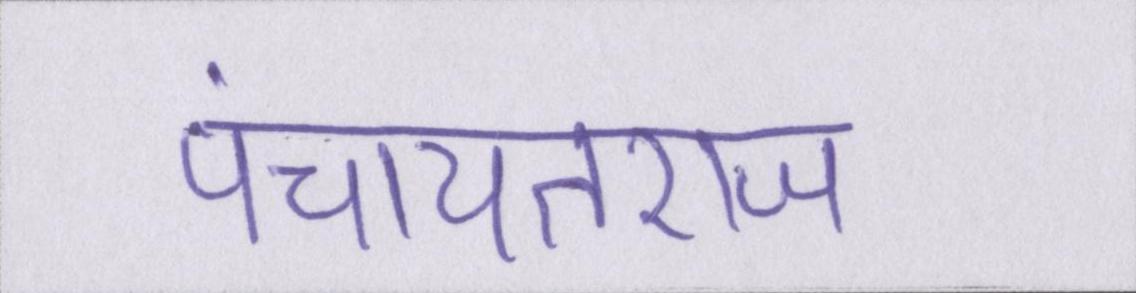 पंचायतराज